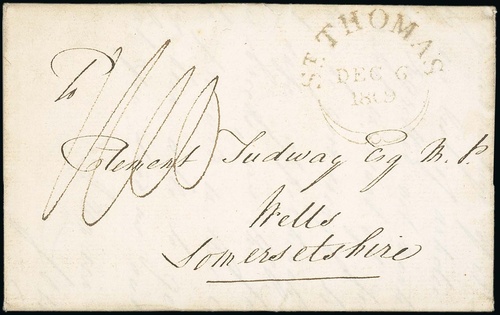 ST. THOMAS
DEC 6
1809
To
Clement Tudway Esq M.P.
Wells
Somersetshire